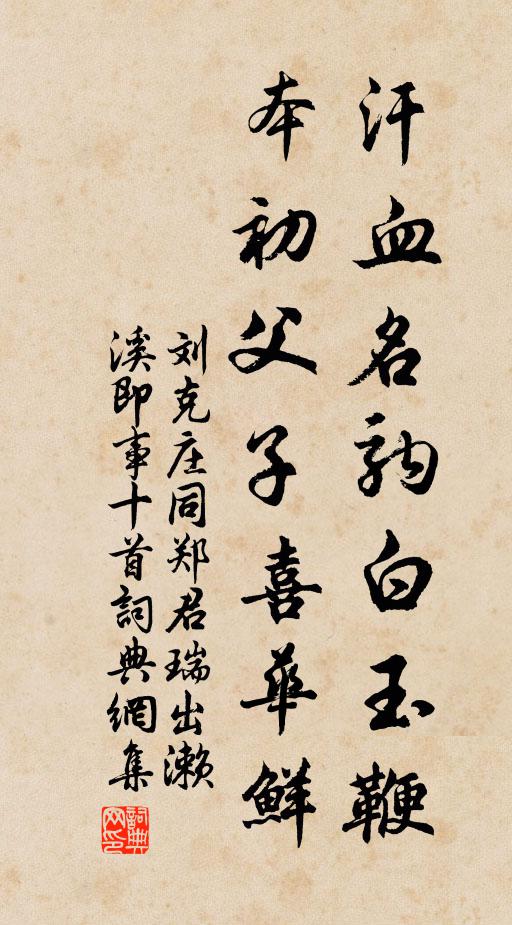 汗血名駒白玉鞭
本初父子喜華鮮
刘克庄同郑君瑞出濑
溪即事十首詞典網集
詞典
网印